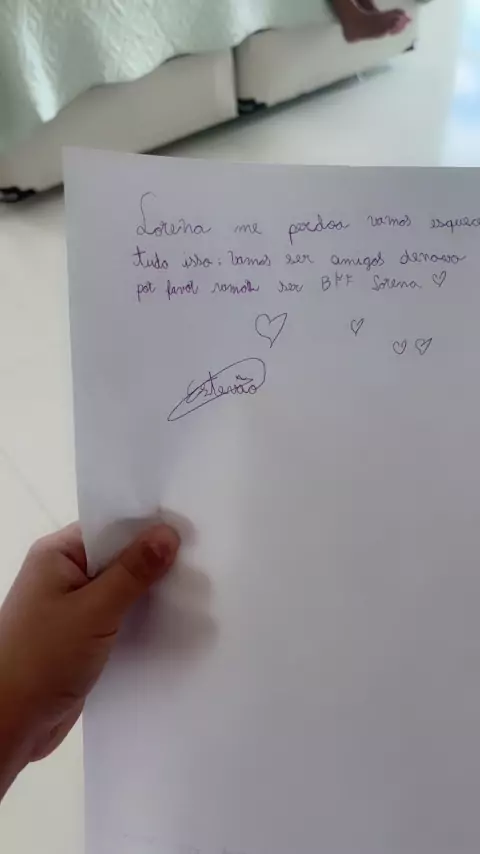 Lorena me perdoa vamos esquece
tudo isso. Vamos ser amigos denovo
por favor vamos ser BFF Lorena ♡
Estevão